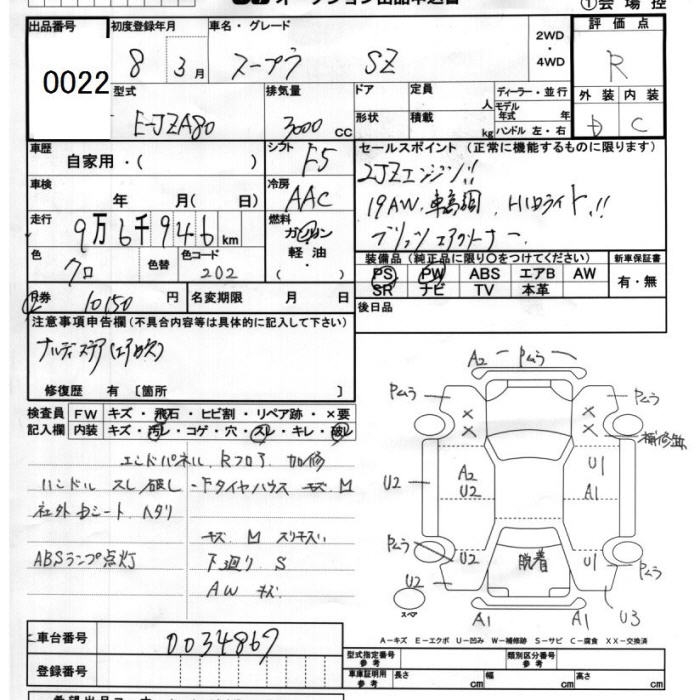 オークション出品申込書
①会場控
出品番号
0022
初度登録年月
8 3月
車名・グレード
スープラ SZ
2WD
・
4WD
評価点
R
外装 内装
D C
型式
E-JZA80
排気量
3000 CC
ドア
定員 人
形状
積載 kg
ディーラー・並行
モデル年式 年
ハンドル 左・右
車歴
自家用・( )
シフト
F5
セールスポイント (正常に機能するものに限ります)
2JZエンジン!!
19AW. 車高調. HIDライト.!!
ブリッツ エアクリーナー.
車検
年 月( 日)
冷房
AAC
走行
9万6千946km
燃料
ガソリン
軽油・
( )
色
クロ
色替
色コード
202
装備品 (純正品に限り○をつけてください)
PS PW ABS エアB AW
SR ナビ TV 本革
新車保証書
有・無
R券 10150 円
名変期限 月 日
後日品
注意事項申告欄(不具合内容等は具体的に記入して下さい)
ナルディステア(エア欠)
修復歴 有 〔箇所 〕
検査員
記入欄
FW キズ・飛石・ヒビ割・リペア跡・×要
内装 キズ・汚レ・コゲ・穴・スレ・キレ・破レ
エンドパネル, Rフロア 加修
ハンドル スレ/破レ
Fタイヤハウス キズ M
社外シート ヘタリ
キズ M
ABSランプ点灯
下廻り S
AW キズ
A2 Pムラ
Pムラ
Pムラ
× ×
× ×
補修無
U2
A2
U2
U1
A1
A1
Pムラ
U2
U2
脱着
U1
Pムラ
スペア
A1
A1
U3
A-キズ E-エクボ U-凹み W-補修跡 S-サビ C-腐食 XX-交換済
車台番号
0034867
登録番号
型式指定番号
参考
類別区分番号
参考
車庫証明用
参考
長さ cm
幅 cm
高さ cm